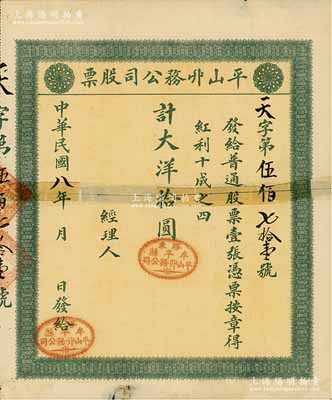 上海陽明拍賣
平山卝務公司股票
天字第伍佰七拾壹號
發給普通股票壹張憑票按章得
紅利十成之四
計大洋拾圓
經理人
中華民國八年 月 日發給
天字第伍佰七拾壹號
平山卝務公司
平山卝務公司